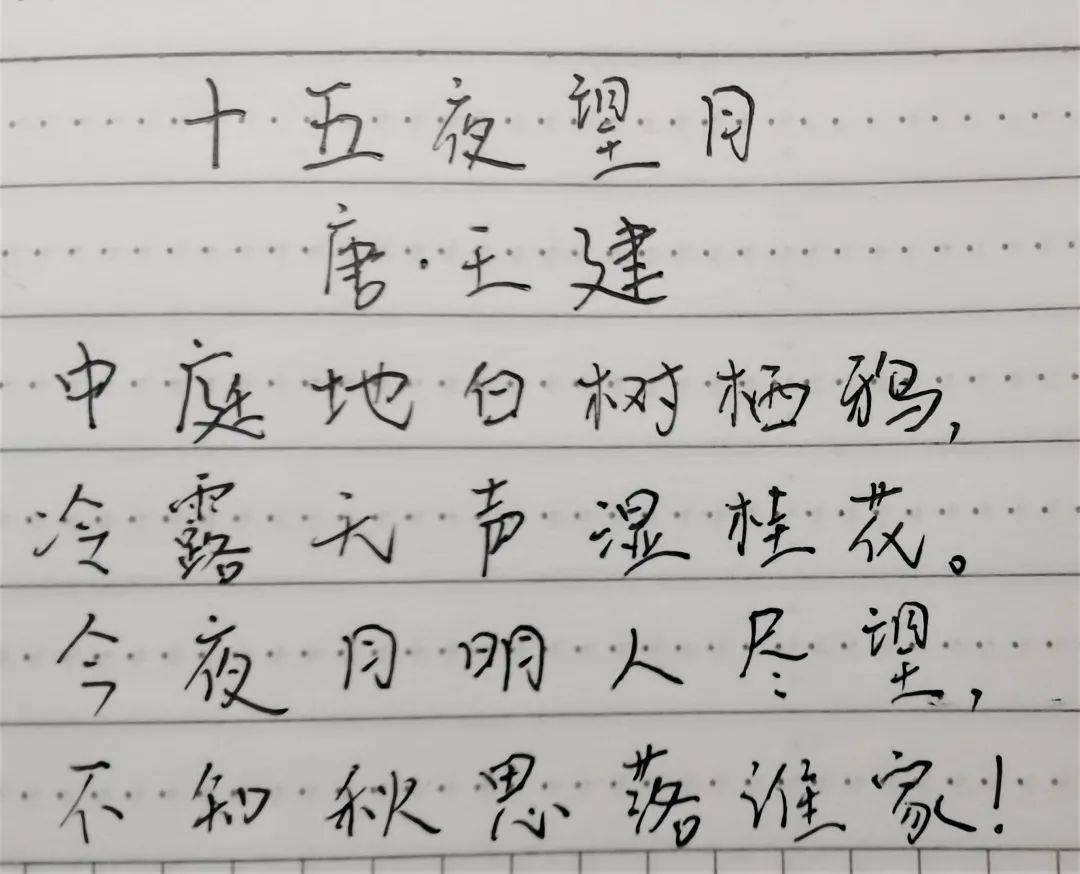 十五夜望月
唐·王建
中庭地白树栖鸦,
冷露无声湿桂花。
今夜月明人尽望,
不知秋思落谁家!